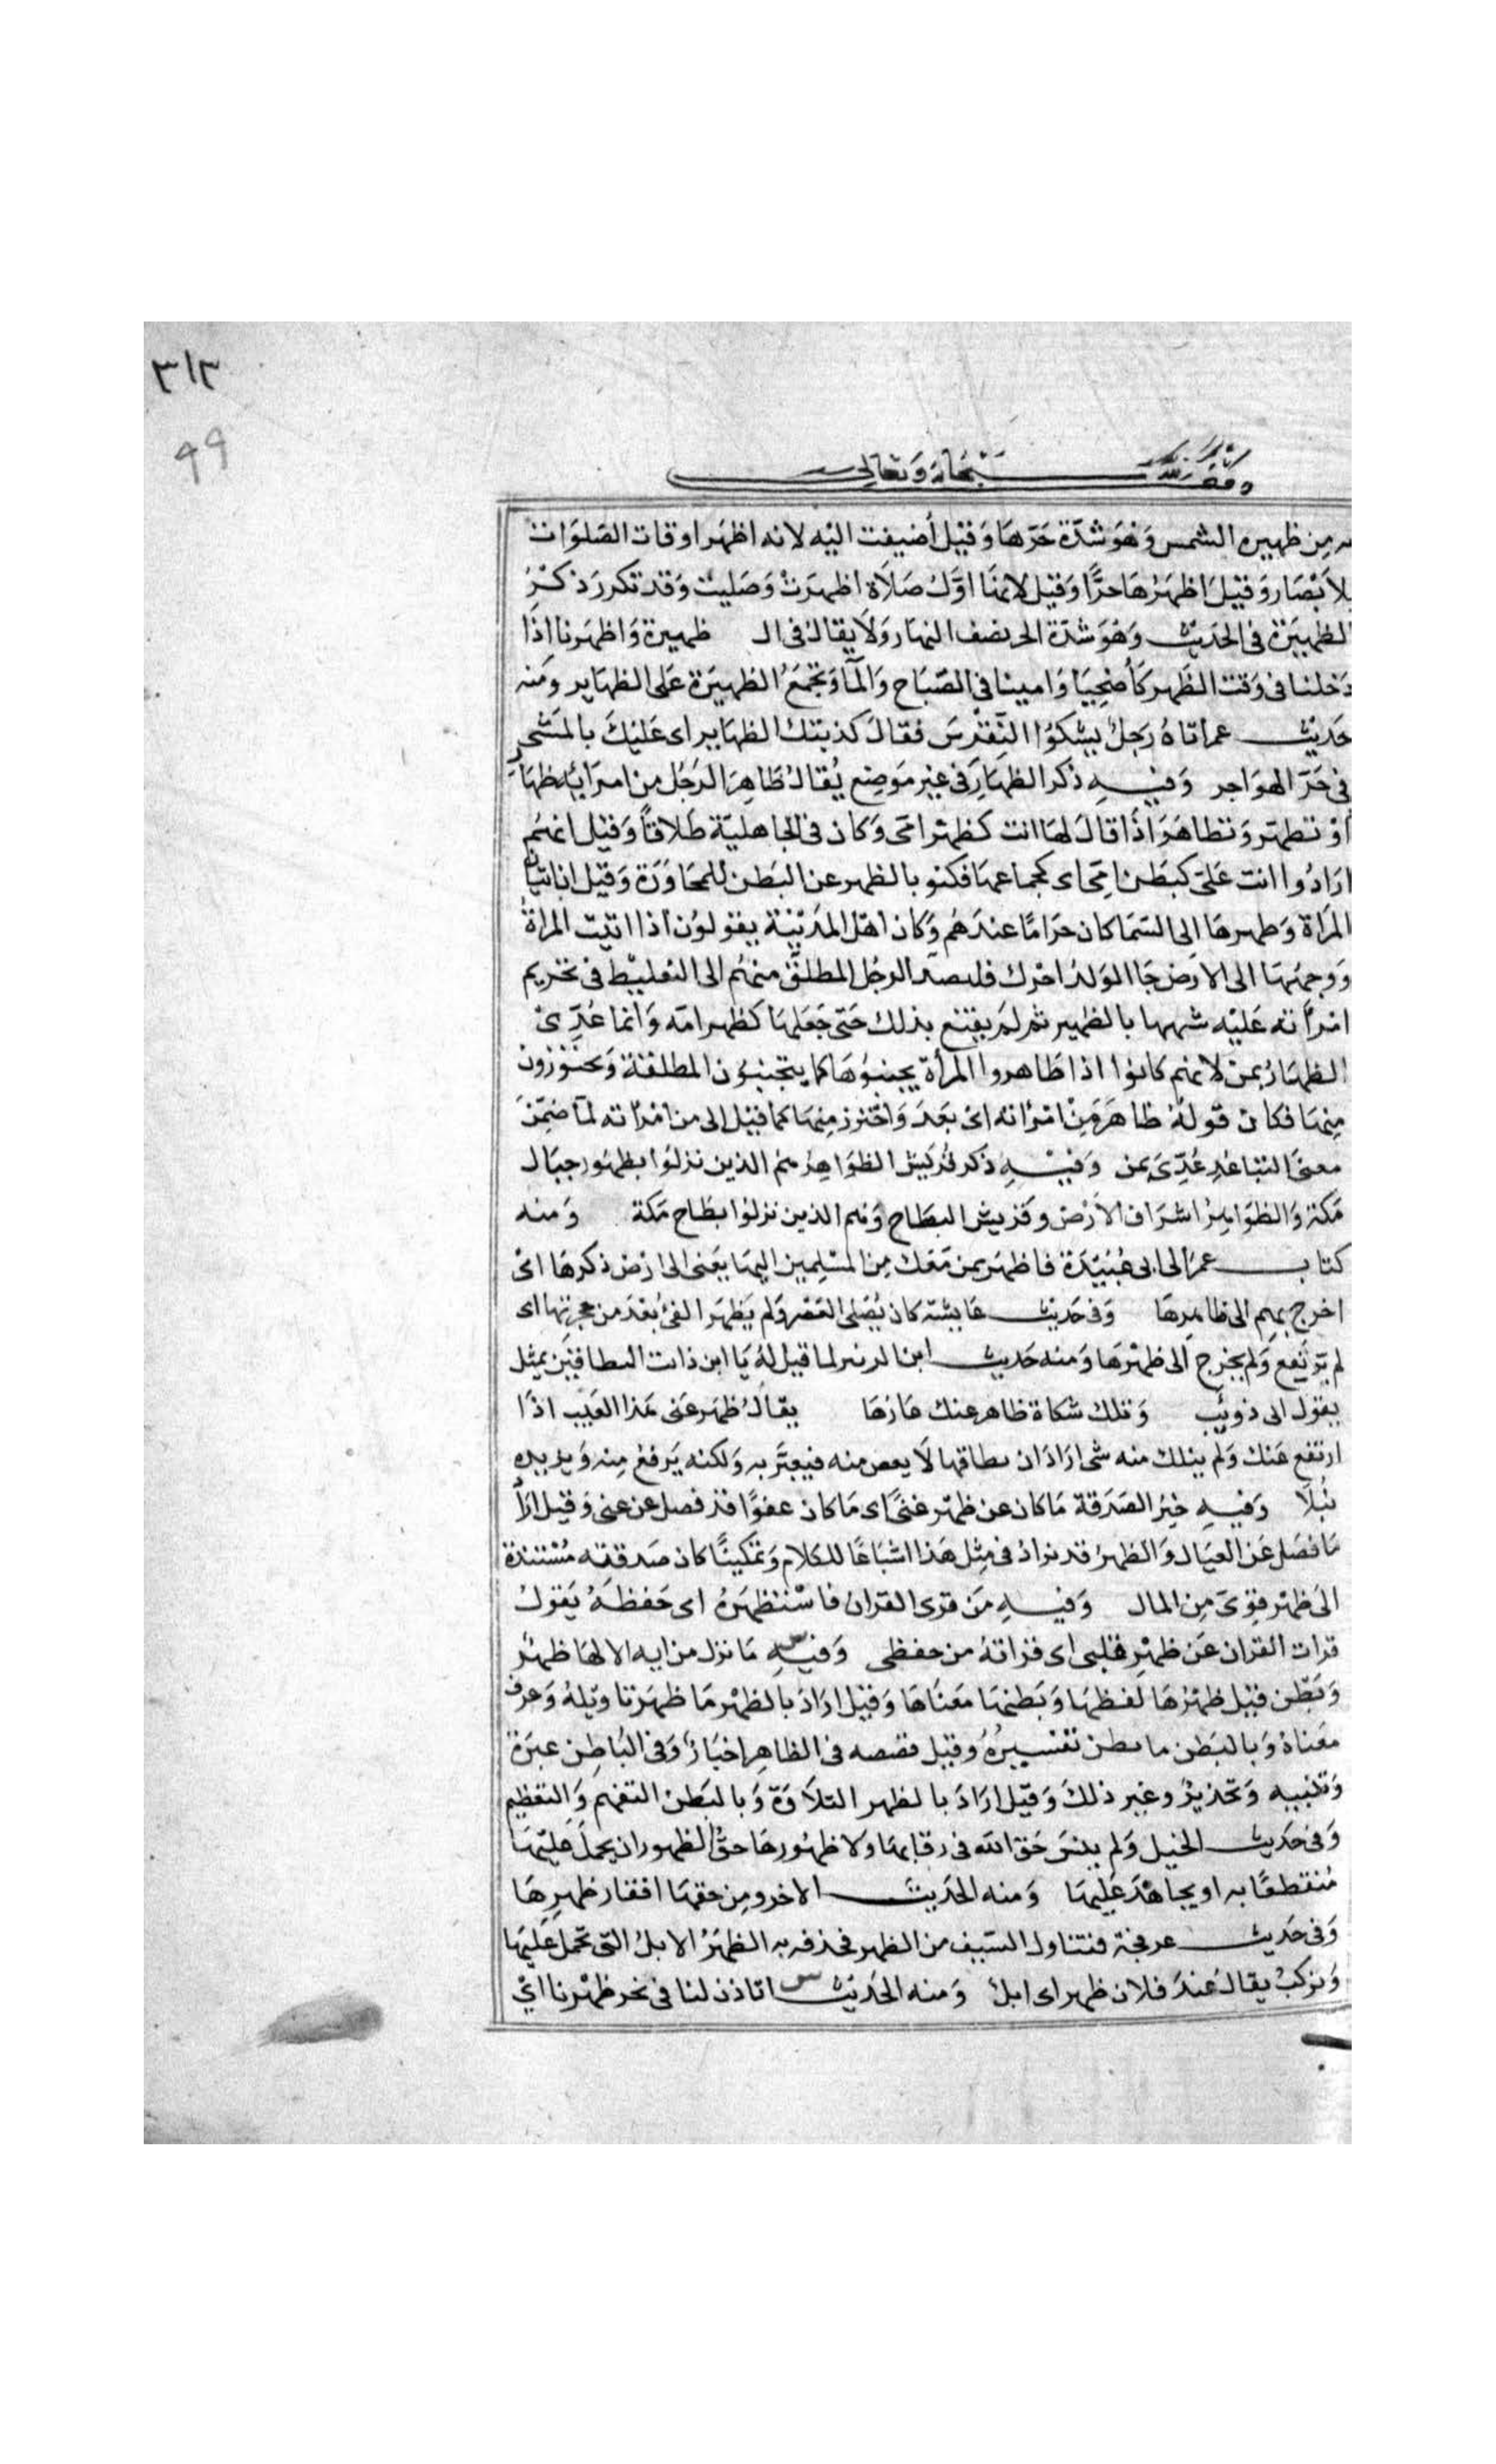 ٣١٢
٩٩
وقف لله سبحانه وتعالى
به مِن ظهيره الشمس وَهوَ شدّة حَرّهَا وَقيْل أضيفت اليْه لانه اظهَر اوقات الصَلوَات
للابْصَار وَقيْل اظهَرُهَا حرًّا وَقيْل لانهَا اوّلُ صَلاَة اظهرَتْ وَصَليتْ وَقد تكررَ ذكرُ
الظهيَرة فى الحَديْث وَهوَ شدّة الحر نصف النهَار وَلاَ يقالُ فى الـ ظهيرة وَاظهَرنا اذَا
دَخلنا فى وَقت الظَهر كَأضحِيَا وَامينا فى الصّبَاح وَالمآ وَتجمَعُ الظهيَرة عَلى الظهَاير ومَنه
حَديْث عمر اتاهُ رَجلٌ يشكوُا النّقرسَ فقالَ كذبتك الظهَاير اى عَليْكَ بالمَشى
فى حَرّ الهوَاجر وَفيْهِ ذكر الظهَار فى غير مَوضِع يُقالُ ظَاهرَ الرَجُل من امرَاته ظهَارً
اوْ تظهّر وَتظاهَرَ اذَا قالَ لهَا انت كَظهْر امّى وَكان فى الجاهليّة طَلاقاً وَقيْل انهُم
ارَادُوا انت عَلىّ كبَطن امّى اى كجماعهَا فكنو بالظهر عن البَطن للمجَاوَرَة وَقيْل ان اتيَان
المَرَاة وَظهرهَا الى السَمَا كان حَرَامًا عندَهُم وَكان اهْل المَديْنة يقولوُن اذا اتيْت المرَاةُ
وَوجهُهَا الى الارَض جَا الوَلدُ احْوَل فلقصد الرجُل المطلّق منهُم الى التغليْظ فى تحريم
امْرَأته عَليْه شبهها بالظهير ثم لمَ يقنَع بذلك حَتى جَعَلهَا كَظهر امّه وَانما عُدِّىْ
الظهَارُ بمن لانهُم كانوا اذا ظَاهروا المَرْأة يجنبوُهَا كما يتجنبوُن المطلقة وَيحترزون
مِنهَا فكان قولهُ ظاهَرَ مِنْ امْرَاته اى بعَدَ وَاحْترز مِنهَا كما قيْل الى من امْرَاته لمّا ضمّنَ
معنى التبَاعُد عُدّىَ بمن وَفيْهِ ذكر قرَيش الظوَاهِر هم الذين نزلوُا بظهُور جبَال
مَكة وَالظوَاهِرُ اشرَاف الاَرْض وقريش البطَاح وَهم الذين نزلوُا بطَاح مَكة وَمنه
كتاب عمرَ الى ابى عُبيْدَة فاظهَر بمن مَعَك مِن المسْلِمين اليهَا يعَنى الى ارْض ذكرهَا اىْ
اخرج بهم الى ظاهِرهَا وَفى حَديْث عَايشة كان يُصَلى العَصْر وَلم يَظهَر الفئُ بَعْدَ من حجرتها اى
لم يَرتفع وَلم يخرج الى ظهْرهَا وَمنه حَديث ابن الزبير لما قيل لهُ يَا ابن ذات النطاقيْن يمثل
بقول ابى ذويب وَتلك شكاة ظاهر عنك عَارهَا يقالُ ظهَر عَنى هَذا العَيْب اذَا
ارتفع عَنك وَلم ينلك منه شى ارَادَ ان نطاقها لاَ يغض منه فيعيَّر به وَلكنه يَرفع مِنه وَيزيده
نبْلاً وَفيْهِ خيْرُ الصَدَقة مَا كان عن ظهْر غنىً اى مَا كان عفوًا قد فضل عن غنى وَقيل ارَادَ
مَا فضَل عَن العيَال وَالظهرُ قد يزادُ فى مِثل هَذا اشبَاعًا للكلام وَتمكينًا كان صَدقته مُسْتندة
الىَ ظهْر قوىّ مِن المال وَفيْهِ مَن قرى القران فاسْتظهَرهُ اى حَفظهُ يَقولُ
قرات القران عَن ظهْر قلبى اى قراتهُ من حفظى وَفيْه مَا نزل من ايه الا لهَا ظهْرٌ
وَبَطن قيْل ظهْرُهَا لفظهَا وَبَطنهَا مَعنَاهَا وَقيْل ارَادَ بالظهْر مَا ظهَر تاويْلهُ وَعرف
مَعنَاهُ وَبالبَطن ما بطن تفسِيرُهُ وقيْل قصصه فى الظاهِر اخبَارٌ وَفى البَاطِن عبَرة
وَتنبيه وَتحذيرٌ وغير ذلكَ وَقيْل ارَادَ بالظهر التلاَوَة وَبالبَطن التفهم وَالتعَظيم
وَفى حَديث الخيل وَلم ينسَ حَق الله فى رقابهَا وَلا ظهُورهَا حقُّ الظهور ان يحملَ عَليْهَا
مُنقطعًا به او يجاهْدَ عَليهَا وَمنه الحَديثَ الاخر ومِن حَقهَا افقار ظهرِهَا
وَفى حَديث عرفجة فتناول السّيف من الظهر فحذفه به الظهَرُ الابلُ التى تحمَل عَليهَا
وَتركبُ يقالُ عندَ فلان ظهر اى ابل وَمنه الحَديْث اتاذن لنا فى نحر ظهْرنا اىْ